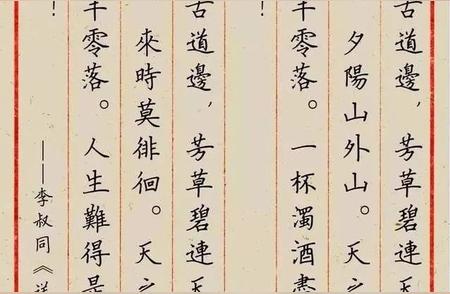 古道邊,芳草碧連天
夕陽山外山。天之
半零落。一杯濁酒盡
!
古道邊,芳草碧連天
來時莫徘徊。天之
半零落。人生難得是
!
——李叔同《送